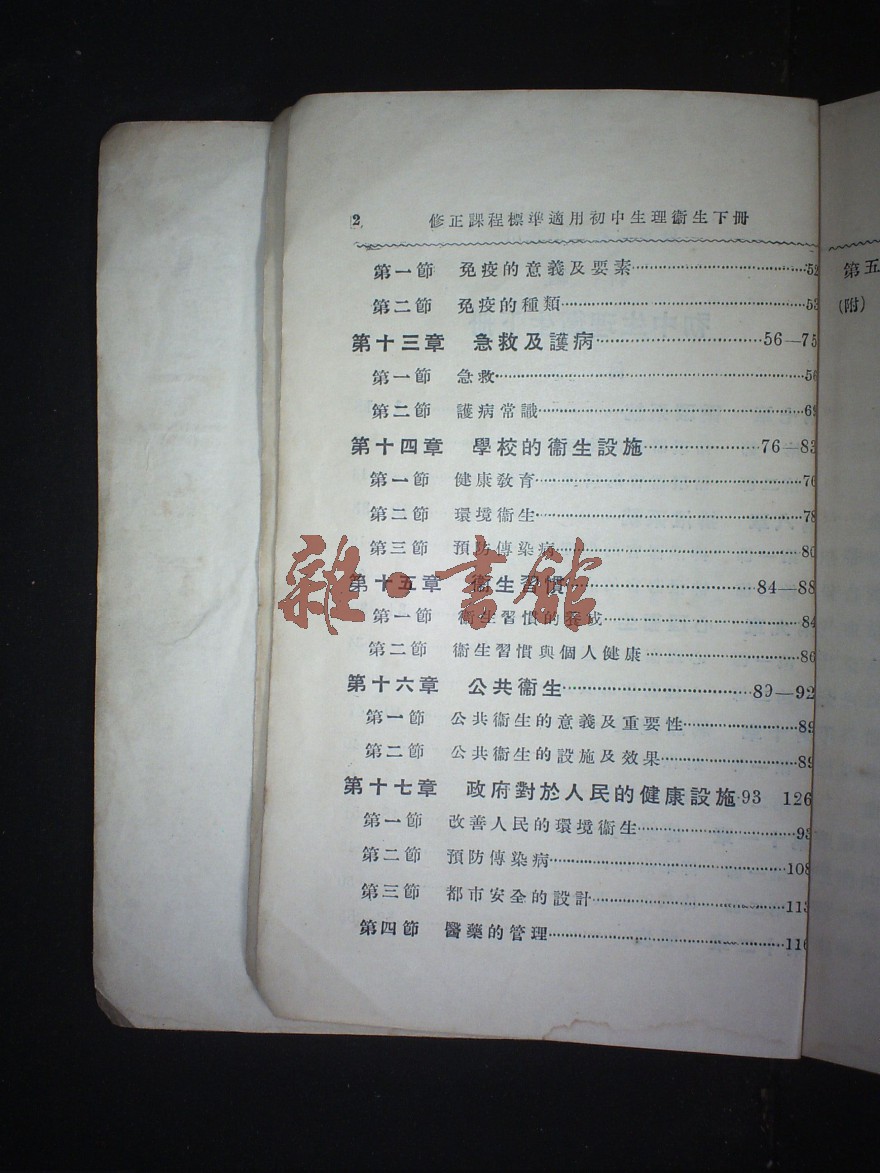 2 修正課程標準適用初中生理衞生下冊
第一節 免疫的意義及要素……52
第二節 免疫的種類……53
第十三章 急救及護病……56—75
第一節 急救……56
第二節 護病常識……69
第十四章 學校的衞生設施……76—83
第一節 健康教育……76
第二節 環境衞生……78
第三節 預防傳染病……80
第十五章 衞生習慣……84—88
第一節 衞生習慣的養成……84
第二節 衞生習慣與個人健康……86
第十六章 公共衞生……89—92
第一節 公共衞生的意義及重要性……89
第二節 公共衞生的設施及效果……89
第十七章 政府對於人民的健康設施·93 126
第一節 改善人民的環境衞生……93
第二節 預防傳染病……108
第三節 都市安全的設計……113
第四節 醫藥的管理……116
雜·書館
第五
(附)